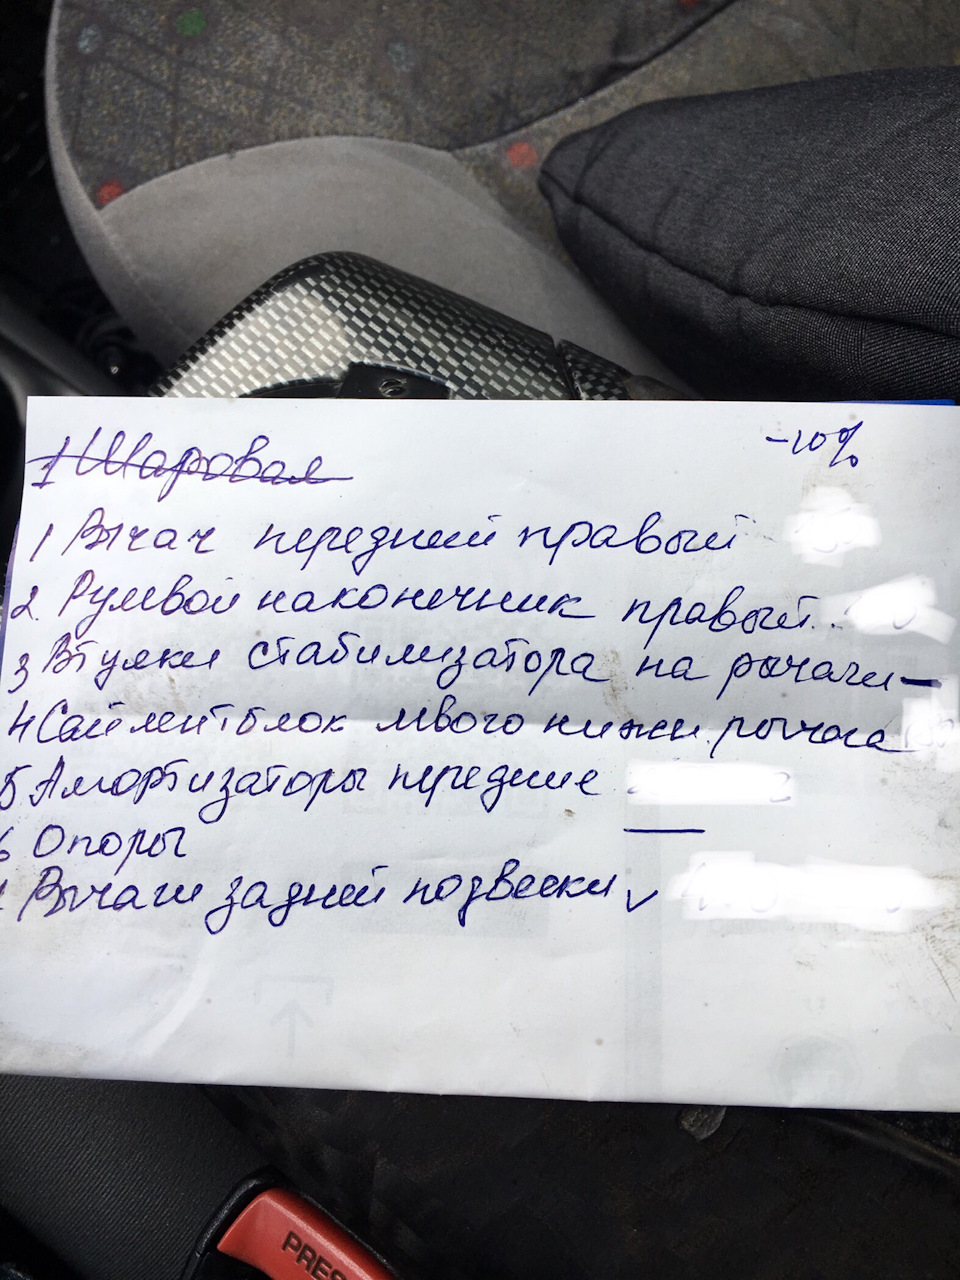 -10%
1 Шаровая
1 Рычаг передний правый
2 Рулевой наконечник правый
3 Втулки стабилизатора на рычаги -
4 Сайлентблок левого нижн. рычага
5 Амортизаторы передние
6 Опоры
Рычаги задней подвески ✓
PRES